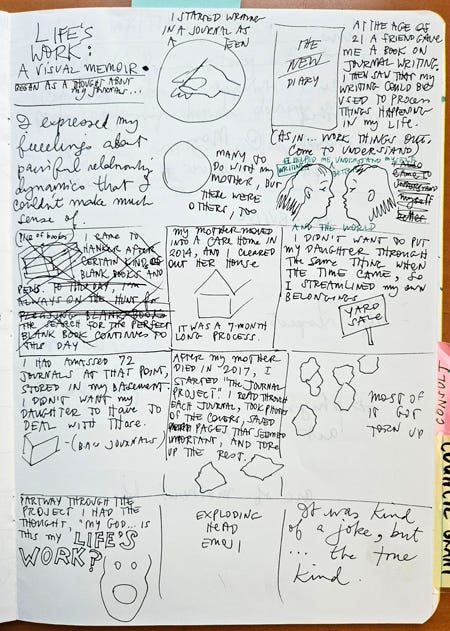 LIFE'S
WORK:
A VISUAL MEMOIR
BEGAN AS A THOUGHT ABOUT
MY JOURNALS...
I STARTED WRITING
IN A JOURNAL AS
A TEEN
THE
NEW
DIARY
AT THE AGE OF
21 A FRIEND GAVE
ME A BOOK ON
JOURNAL WRITING.
I THEN SAW THAT MY
WRITING COULD BE
USED TO PROCESS
THINGS HAPPENING
IN MY LIFE.
(AS IN... WORK THINGS OUT.
COME TO UNDERSTAND)
I expressed my
feelings about
painful relationship
dynamics that I
couldn't make much
sense of
MANY TO
DO WITH MY
MOTHER, BUT
THERE WERE
OTHERS, TOO
WRITING
HELPED ME UNDERSTAND
CAME TO
UNDERSTAND
MYSELF
BETTER
AND THE WORLD
Pile of books
I CAME TO
HANKER AFTER
CERTAIN KINDS OF
BLANK BOOKS AND
PENS. TO THIS DAY, I'M
ALWAYS ON THE HUNT FOR
BLANK BOOKS
THE SEARCH FOR THE PERFECT
BLANK BOOK CONTINUES TO
THIS DAY
MY MOTHER MOVED
INTO A CARE HOME IN
2014, AND I CLEARED
OUT HER HOUSE
IT WAS A 7-MONTH
LONG PROCESS.
I DIDN'T WANT TO PUT
MY DAUGHTER THROUGH
THE SAME THING WHEN
THE TIME CAME, SO
I STREAMLINED MY OWN
BELONGINGS
YARD
SALE
I HAD AMASSED 72
JOURNALS AT THAT POINT,
STORED IN MY BASEMENT.
I DIDN'T WANT MY
DAUGHTER TO HAVE TO
DEAL WITH THOSE.
JOURNALS)
AFTER MY MOTHER
DIED IN 2017, I
STARTED "THE JOURNAL
PROJECT." I READ THROUGH
EACH JOURNAL, TOOK PHOTOS
OF THE COVERS, SAVED
PAGES THAT SEEMED
IMPORTANT, AND TORE
UP THE REST.
MOST OF
IT GOT
TORN UP
PARTWAY THROUGH THE
PROJECT I HAD THE
THOUGHT, "MY GOD... IS
THIS MY LIFE'S
WORK?
EXPLODING
HEAD
EMOJI
It was kind
of a joke, but
... the true
kind.